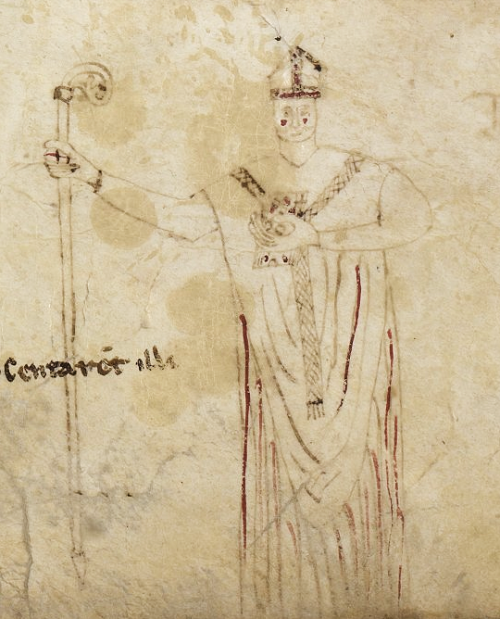 Centarēt illi